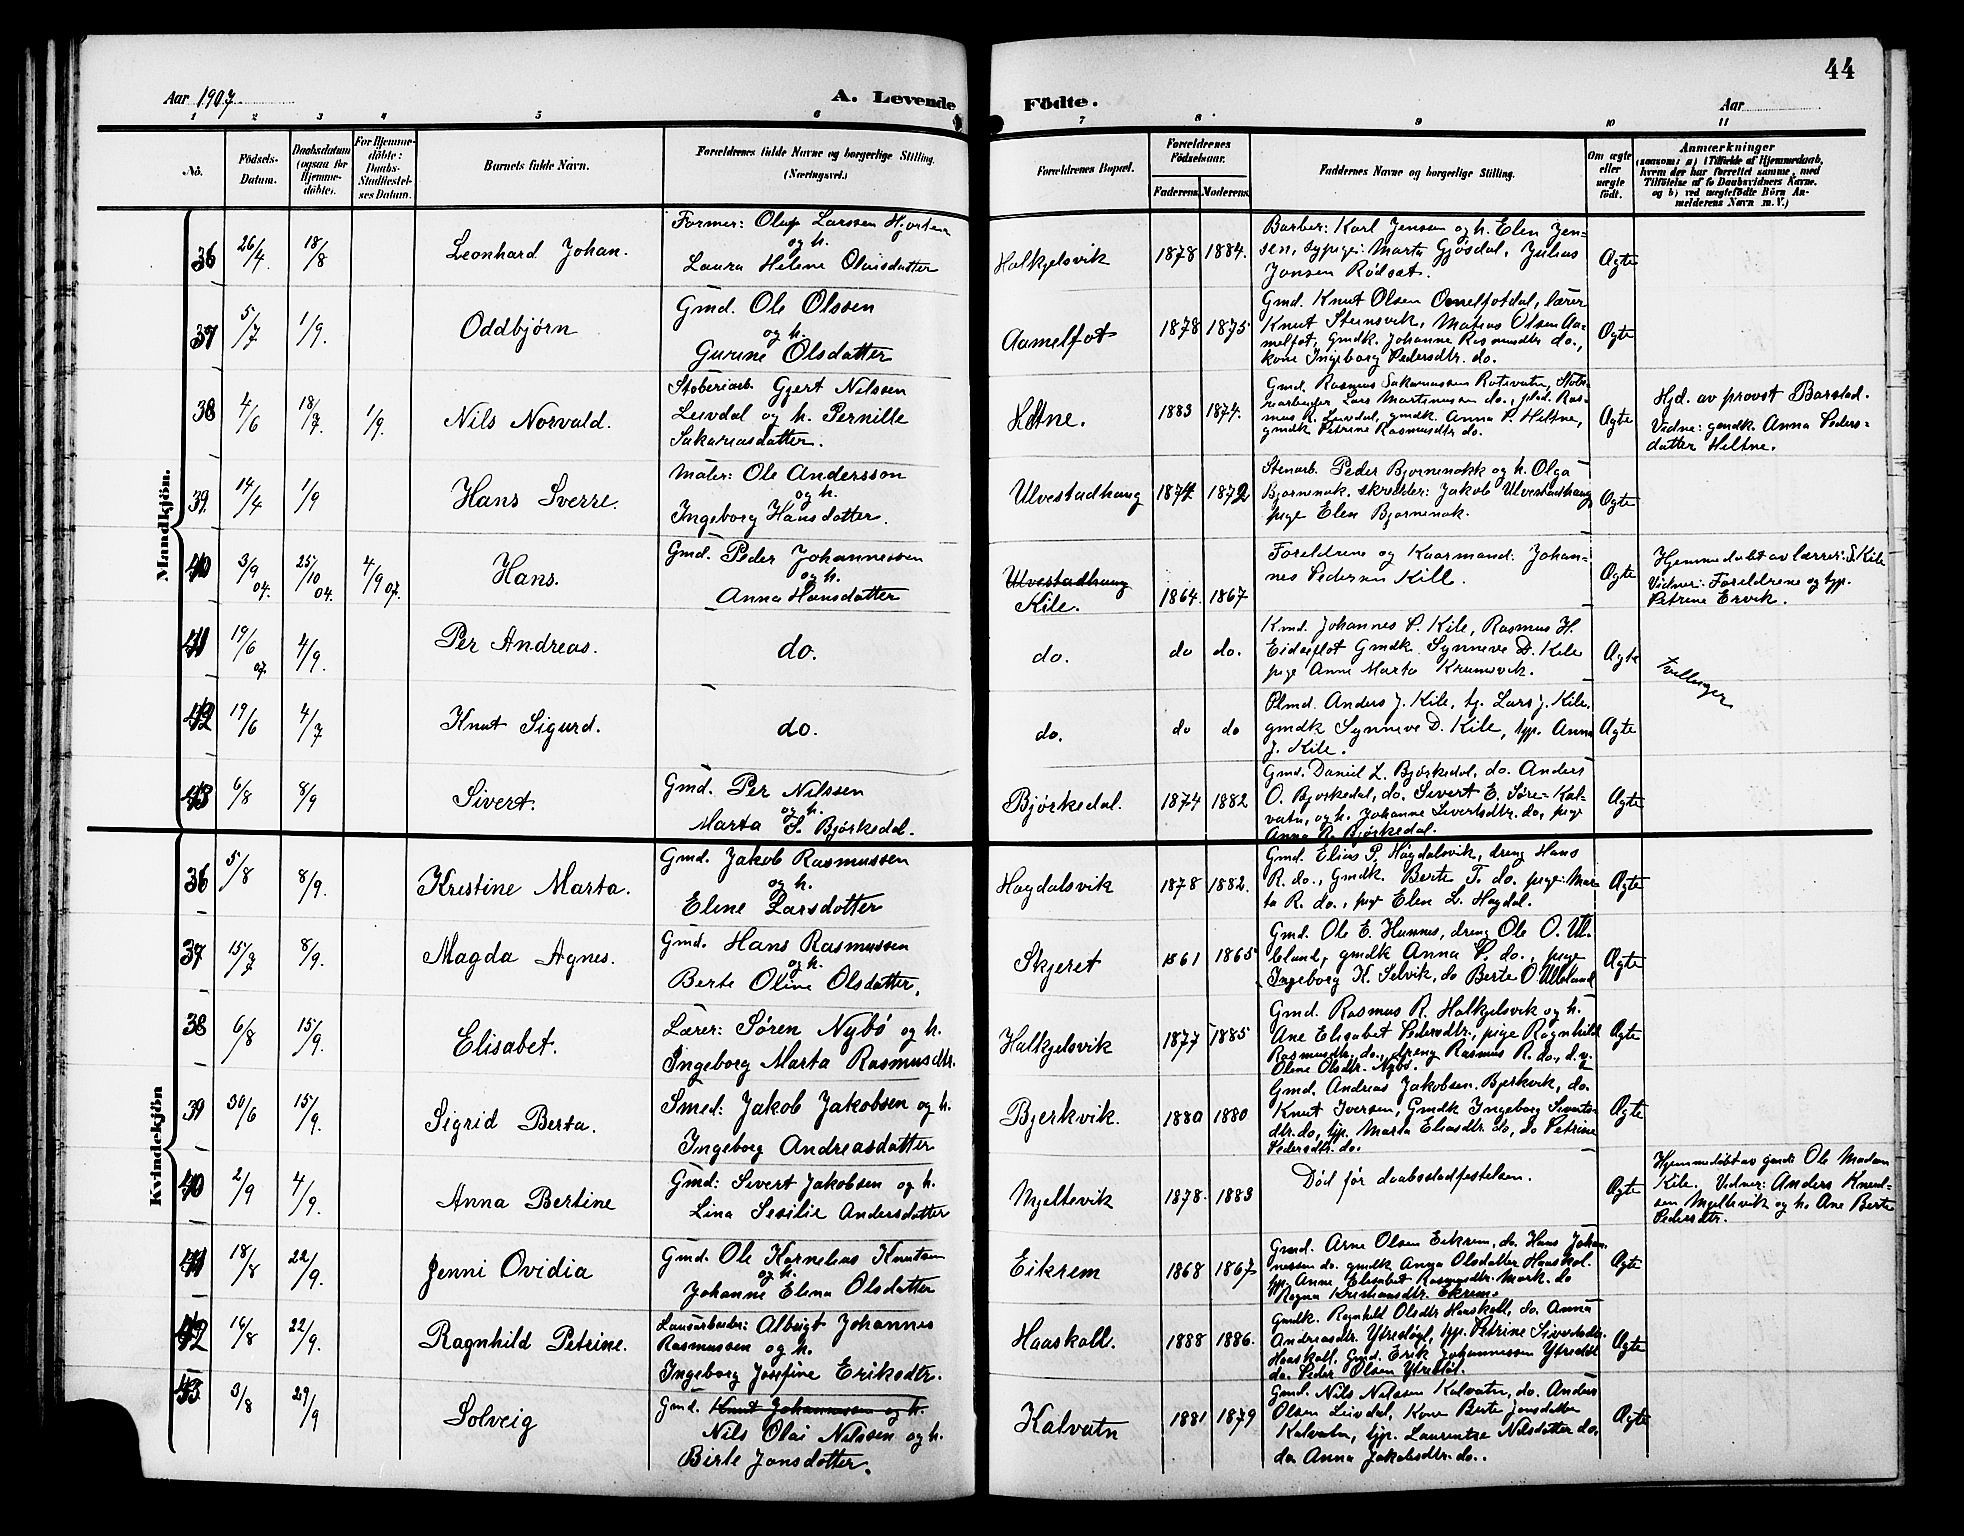 44
Aar 1907
A. Levende
Födte.
Aar
1 2 3 4 5 6 7 8 9 10 11
No.
Födsels-
Datum.
Daabsdatum
(ogsaa for
Hjemme-
döbte).
For Hjemme-
döbte:
Daabs-
Stadfæstel-
ses Datum.
Barnets fulde Navn.
Forældrenes fulde Navne og borgerlige Stilling.
(Næringsvei.)
Forældrenes Bopæl.
Forældrenes
Födselsaar.
Faderens. Moderens.
Faddernes Navne og borgerlige Stilling.
Om ægte
eller
uægte
födt.
Anmærkninger
(saasom: a) i Tilfælde af Hjemmedaab,
hvem der har forrettet samme, med
Tilföielse af to Daabsvidners Navne,
og b) ved uægtefödte Börn An-
melderens Navn m. V.)
Mandkjön.
36 26/4 18/8
Leonhard Johan.
Former: Oluf Larssen Hjorten
og h.
Laura Heline Olaisdatter
Halkjelsvik 1878 1884.
Barber: Karl Jenssen og h. Elen Jen-
sen, sypige: Marta Gjøsdal, Julius
Jonsen Rødsæt.
Ægte
37 5/7 1/9.
Oddbjörn
Gmd. Ole Olssen
og h.
Gurine Olsdatter
Aamelfot 1878 1875
Gmd. Knut Olsen Omelfotdal, lærer
Knut Steinsvik, Matias Olsen Aa-
melfot, Gmdk. Johanne Rasmusdtr. do.,
kone Ingeborg Pedersdtr. do.
Ægte
38 4/6 18/7. 1/9.
Nils Norvald.
Støberiarb. Gjert Nilssen
Leivdal og h. Pernille
Sakariasdatter.
Heltne. 1883 1874.
Gmd. Rasmus Sakariassen Rotevatn, Støbe-
riarbeider Lars Martinusen do., Ras-
mus R. Leivdal, gmdk. Anna P. Heltne,
gmdk Petrine Rasmusdtr do.
Ægte
Hjd. av provst Barstad.
Vidne: gmdk Anna Peders-
datter Heltne.
39. 14/4 1/9
Hans Sverre.
Maler: Ole Andersson
og h.
Ingeborg Hansdatter.
Ulvestadhaug 1874. 1872
Stenarb. Peder Bjørnenakk og h. Olga
Bjørnenak. skrædder: Jakob Ulvestadhaug
pige Elen Bjørnenak.
Ægte
40 3/9 04. 25/10 04. 4/9 07.
Hans.
Gmd. Peder Johannessen
og h.
Anna Hansdatter
Ulvestadhaug
Kile. 1864. 1867
Forældrene og Kaarmand. Johan-
nes Pedersen Kill.
Ægte
Hjemmedøbt av lærer: S. Kile
Vidner: Forældrene og typ.
Petrine Ervik.
41 19/6 07. 4/9.
Per Andreas.
do.
do. do do.
Kmd. Johannes P. Kile, Rasmus H.
Eidseflot Gmdk. Synneve D. Kile
pige Anne Marta Krumsvik.
Ægte
tvillinger
42 19/6 4/7
Knut Sigurd.
do.
do. do do
Plmd. Anders J. Kile, tj. Lars J. Kile.
gmdk Synneve D. Kile, typ. Anna
J. Kile.
Ægte
43 6/8 8/9
Sivert.
Gmd. Per Nilssen
og h.
Marta S. Bjørkedal.
Bjørkedal. 1874 1882
Gmd. Daniel L. Bjørkedal, do. Anders
O. Bjørkedal, do. Sivert E. Søre-Kal-
vatn, og h. Johanne Sivertsdtr. do, pige
Anna R. Bjørkedal.
Ægte
Kvindekjön
36 5/8 8/9.
Kristine Marta.
Gmd. Jakob Rasmussen
og h.
Eline Larsdatter
Hagdalsvik 1878 1882.
Gmd. Elias P. Hagdalsvik, dreng Hans
R. do., Gmdk. Berte T. do. pige: Mar-
ta R. do., pige Elen L. Hagdal.
Ægte
37 15/7 8/9.
Magda Agnes.
Gmd. Hans Rasmussen
og h.
Berte Oline Olsdatter.
Skjeret 1861 1865
Gmd. Ole E. Humnes, dreng Ole O. Ul-
eland, gmdk Anna P. do., pige
Ingeborg K. Selvik, do Berte O. Ulleland
Ægte
38 6/8 15/9.
Elisabet.
Lærer: Søren Nybö og h.
Ingeborg Marta Rasmusdtr.
Halkjelsvik 1877 1885
Gmd. Rasmus R. Halkjelsvik og h.
Ane Elisabet Pedersdtr., pige Ragnhild
Rasmusdtr. do., dreng Rasmus R. do, d. v.
Oline Olsdtr. Nybø.
Ægte
39 30/6 15/9.
Sigrid Berta.
Smed: Jakob Jakobsen og h.
Ingeborg Andreasdatter
Bjerkvik. 1880 1880
Gmd. Andreas Jakobsen. Bjerkvik, do.
Knut Iversen, Gmdk Ingeborg Siverts-
dtr. do, typ. Marta Eliasdtr. do, do Petrine
Pedersdtr. do.
Ægte
40 2/9 4/9.
Anna Bertine
Gmd: Sivert Jakobsen og h.
Lina Sesilie Andersdatter
Mjeltevik 1878. 1883
Død før daabsstadfæstelsen.
Ægte
Hjemmedøbt av gmd: Ole Madsen
Kile. Vidner: Anders Knud-
sen Mjeltevik og h. Ane Berte
Pedersdtr.
41 18/8 22/9.
Jenni Ovidia
Gmd. Ole Kornelius Knutsen
og h.
Johanne Elina Olsdatter
Eikrem 1868 1867
Gmd. Arne Olsen Eikrem, do. Hans Johan-
nessen do. gmdk Anna Olsdatter Haaskol.
typ. Anne Elisabet Rasmusdtr. Mork. do
Ragna Kristiansdtr. Ekrem.
Ægte
42 16/8 22/9.
Ragnhild Petrine.
Løsarbeider: Albrigt Johannes
Rasmussen og h.
Ingeborg Josefine Eriksdtr.
Haaskoll. 1888 1886.
Gmdk. Ragnhild Olsdtr Haaskoll, do. Anna
Andreasdtr. Ytrestøyl, typ. Petrine Sivertsdtr.
Haaskoll. Gmd. Erik Johannessen Ytrestøl
do. Peder Olsen Ytrestøl.
Ægte
43 3/8 29/9
Solveig
Gmd. Knut Johannessen og h.
Nils Olai Nilssen og h.
Birte Jonsdatter.
Kalvatn 1881 1879
Gmd. Nils Nilssen Kalvatn, do. Anders
Olsen Leivdal, Kone Berte Jonsdatter
Kalvatn, typ. Laurentse Nilsdatter do,
do Anna Jakobsdtr. do..
Ægte